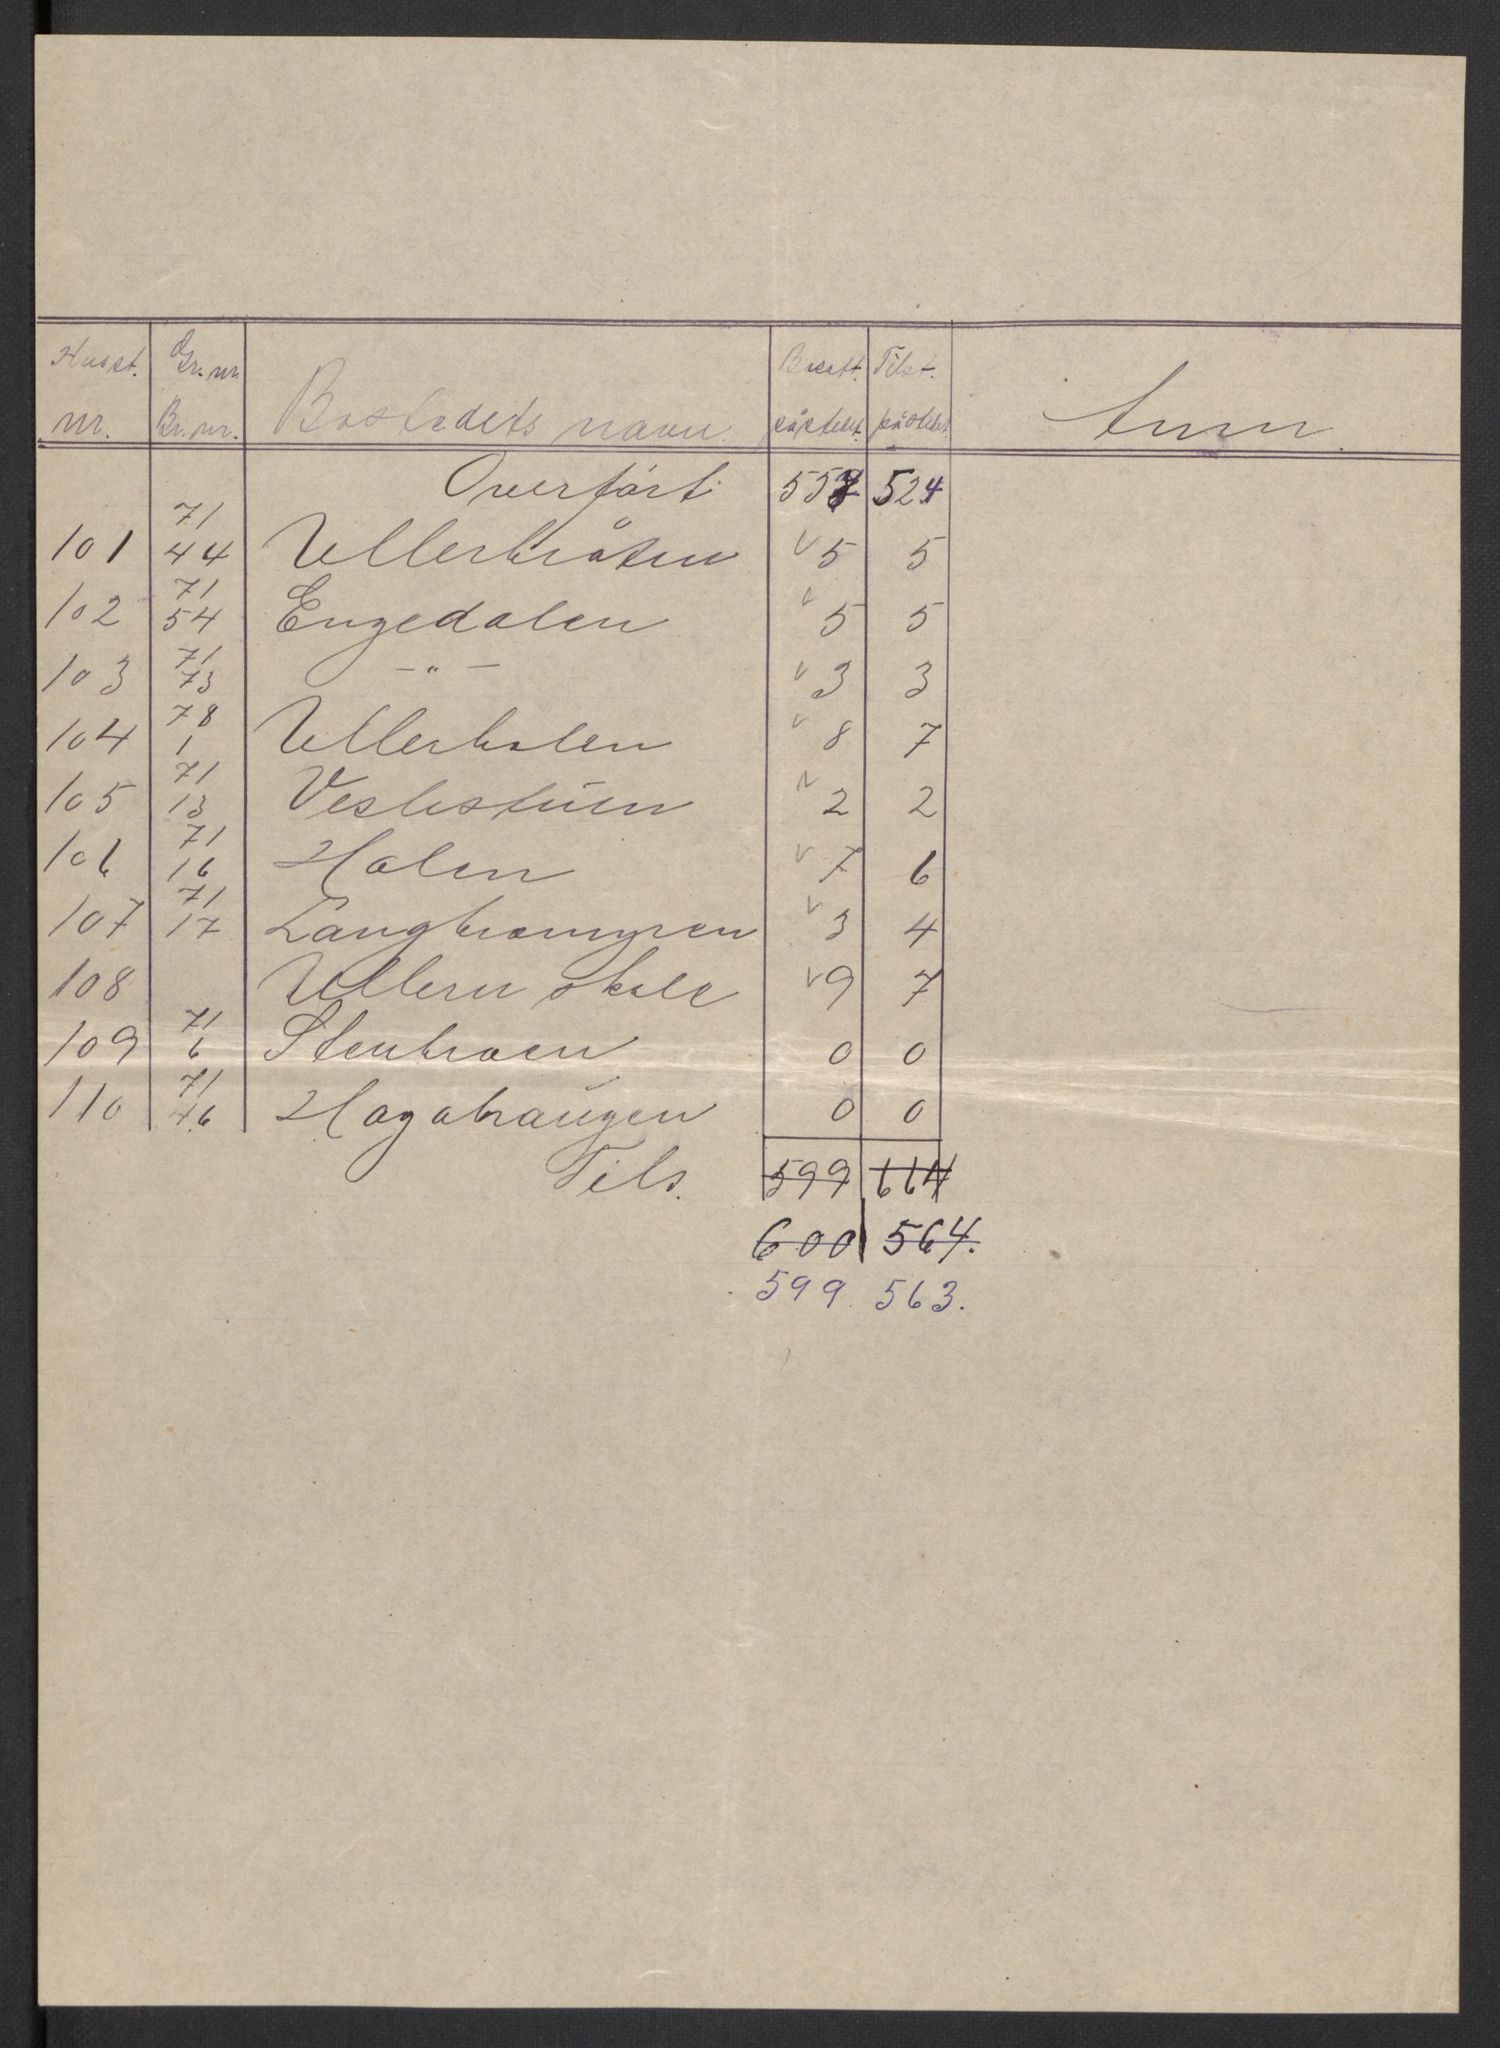 Husst. Gr. nr. Bosatt. Tilst.
nr. Br. nr. Bostedets navn. Anm.
Overført 557 524
71
101 44 Ullerbråten v 5 5
71
102 54 Engedalen v 5 5
71
103 73 - " - v 3 3
78
104 1 Ullerholen v 8 7
71
105 13 Veslestuen v 2 2
71
106 16 Holen v 7 6
71
107 17 v 3 4
108 Ullern skole v 9 7
71
109 6 Stenbroen 0 0
71
110 46 Hagahaugen 0 0
Tils. 599 664
600 564.
599. 563.